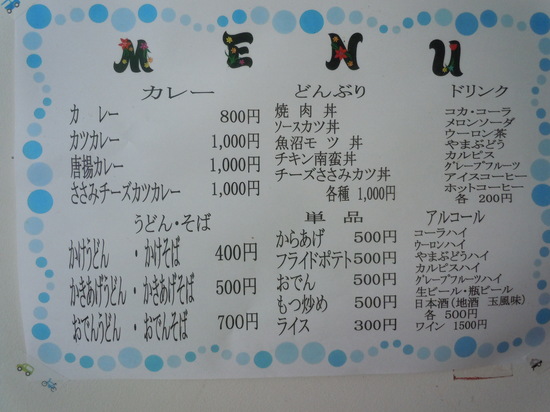 MENU
カレー
カ レー 800円
カツカレー 1,000円
唐揚カレー 1,000円
ささみチーズカツカレー 1,000円
どんぶり
焼肉丼
ソースカツ丼
魚沼モツ丼
チキン南蛮丼
チーズささみカツ丼
各種 1,000円
ドリンク
コカ・コーラ
メロンソーダ
ウーロン茶
やまぶどう
カルピス
グレープフルーツ
アイスコーヒー
ホットコーヒー
各 200円
うどん・そば
かけうどん ・かけそば 400円
かきあげうどん ・かきあげそば 500円
おでんうどん ・おでんそば 700円
単品
からあげ 500円
フライドポテト 500円
おでん 500円
もつ炒め 500円
ライス 300円
アルコール
コーラハイ
ウーロンハイ
やまぶどうハイ
カルピスハイ
グレープフルーツハイ
生ビール・瓶ビール
日本酒(地酒 玉風味)
各 500円
ワイン 1500円